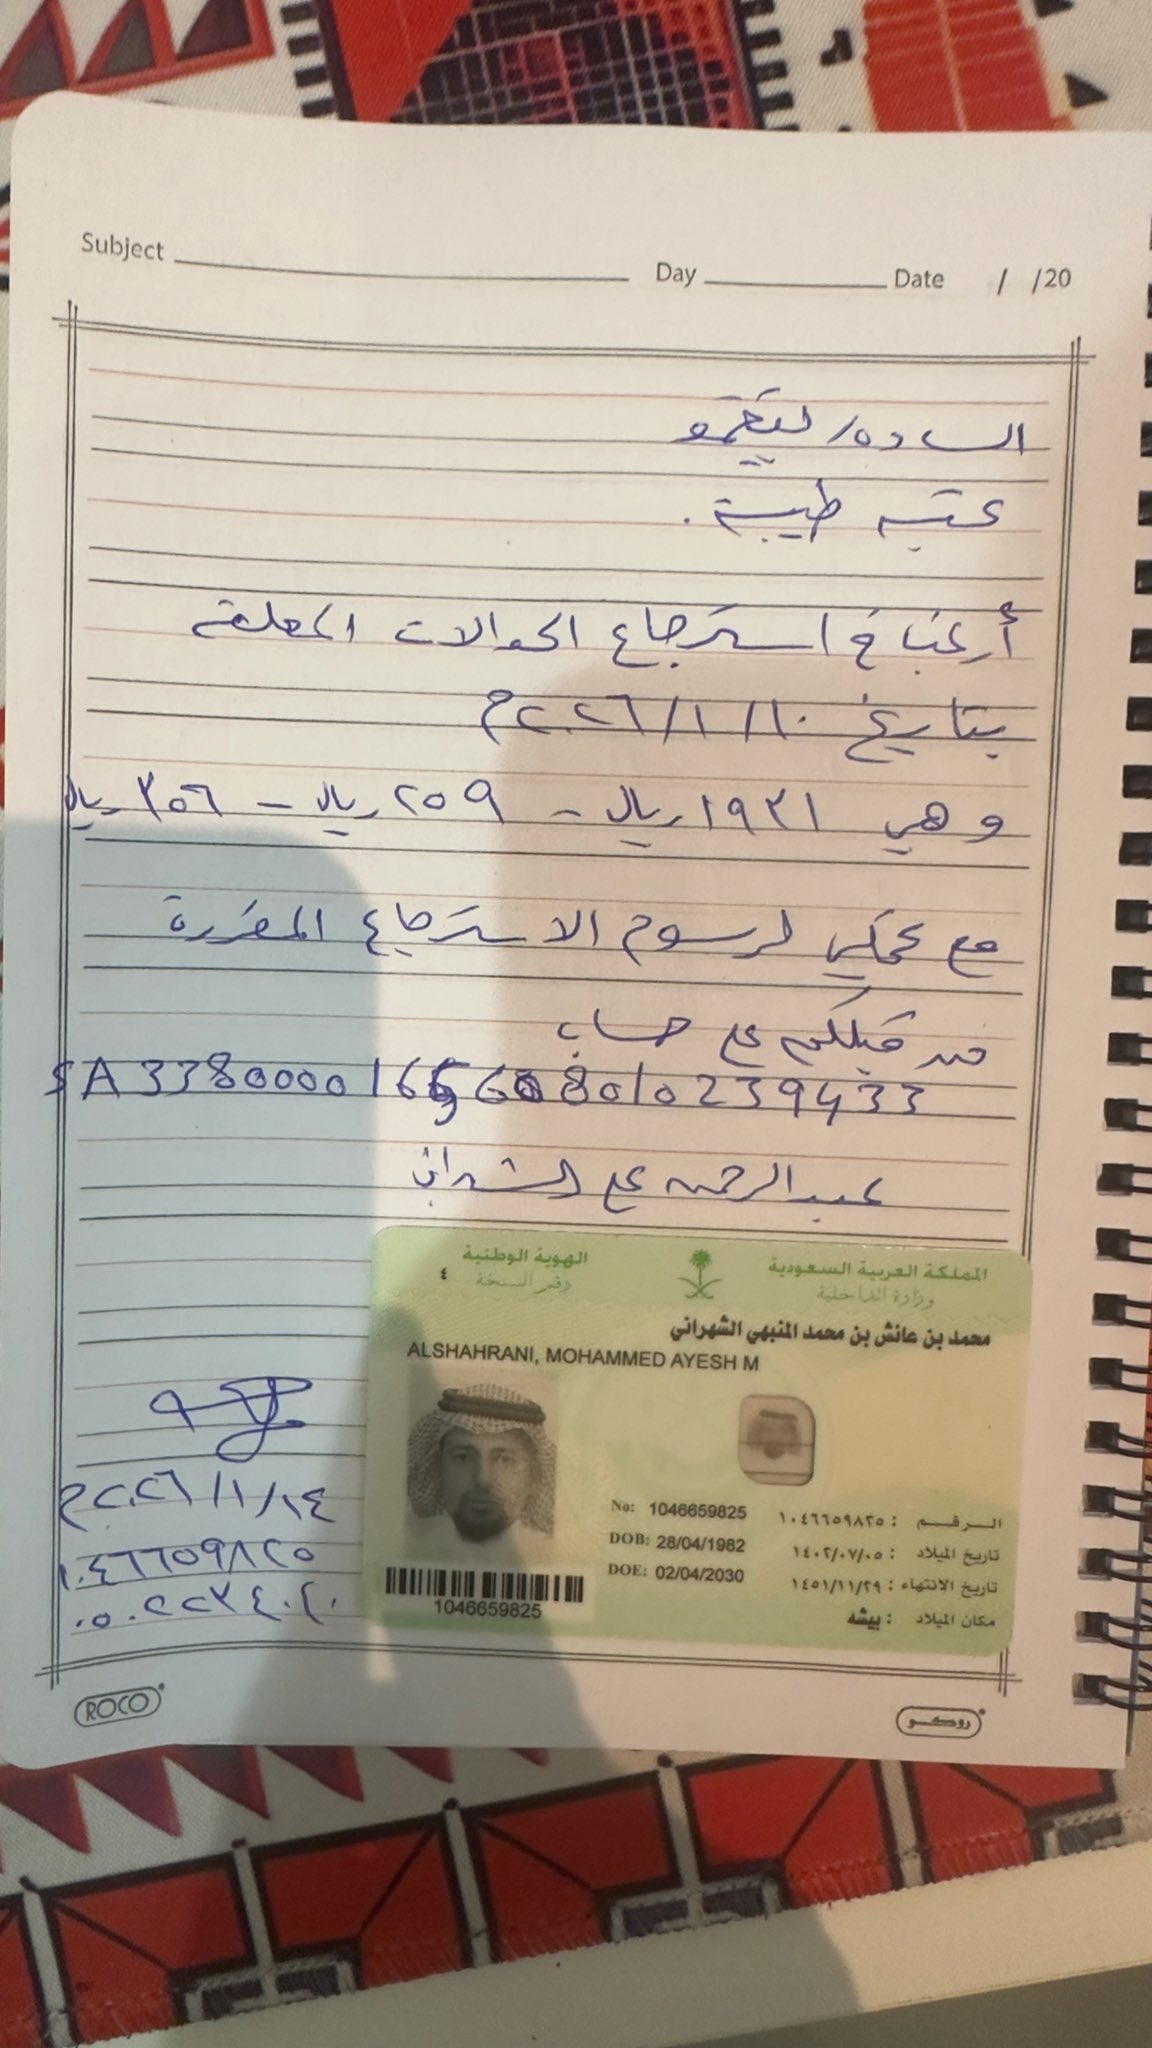 Subject Day Date / /20
الساده/
طيبة .
أرغب في استرجاع الحوالات المعلقه
بتاريخ ١٠/١/٢٠٢٦م
وهي ١٩٣١ ريال - ٢٥٩ ريال - ٣٥٦ ريال
مع تحملي لرسوم الاسترجاع المقررة
من قبلكم على حساب
عبدالرحمن علي الشهراني
المملكة العربية السعودية
وزارة الداخلية
الهوية الوطنية
رقم النسخة ٤
محمد بن عائش بن محمد المنبهي الشهراني
ALSHAHRANI, MOHAMMED AYESH M
No: 1046659825 الرقم : ١٠٤٦٦٥٩٨٢٥
DOB: 28/04/1982 تاريخ الميلاد : ١٤٠٢/٠٧/٠٥
DOE: 02/04/2030 تاريخ الانتهاء : ١٤٥١/١١/٢٩
مكان الميلاد : بيشه
1046659825
١٤/١/٢٠٢٦م
١٠٤٦٦٥٩٨٢٥
ROCO روكو